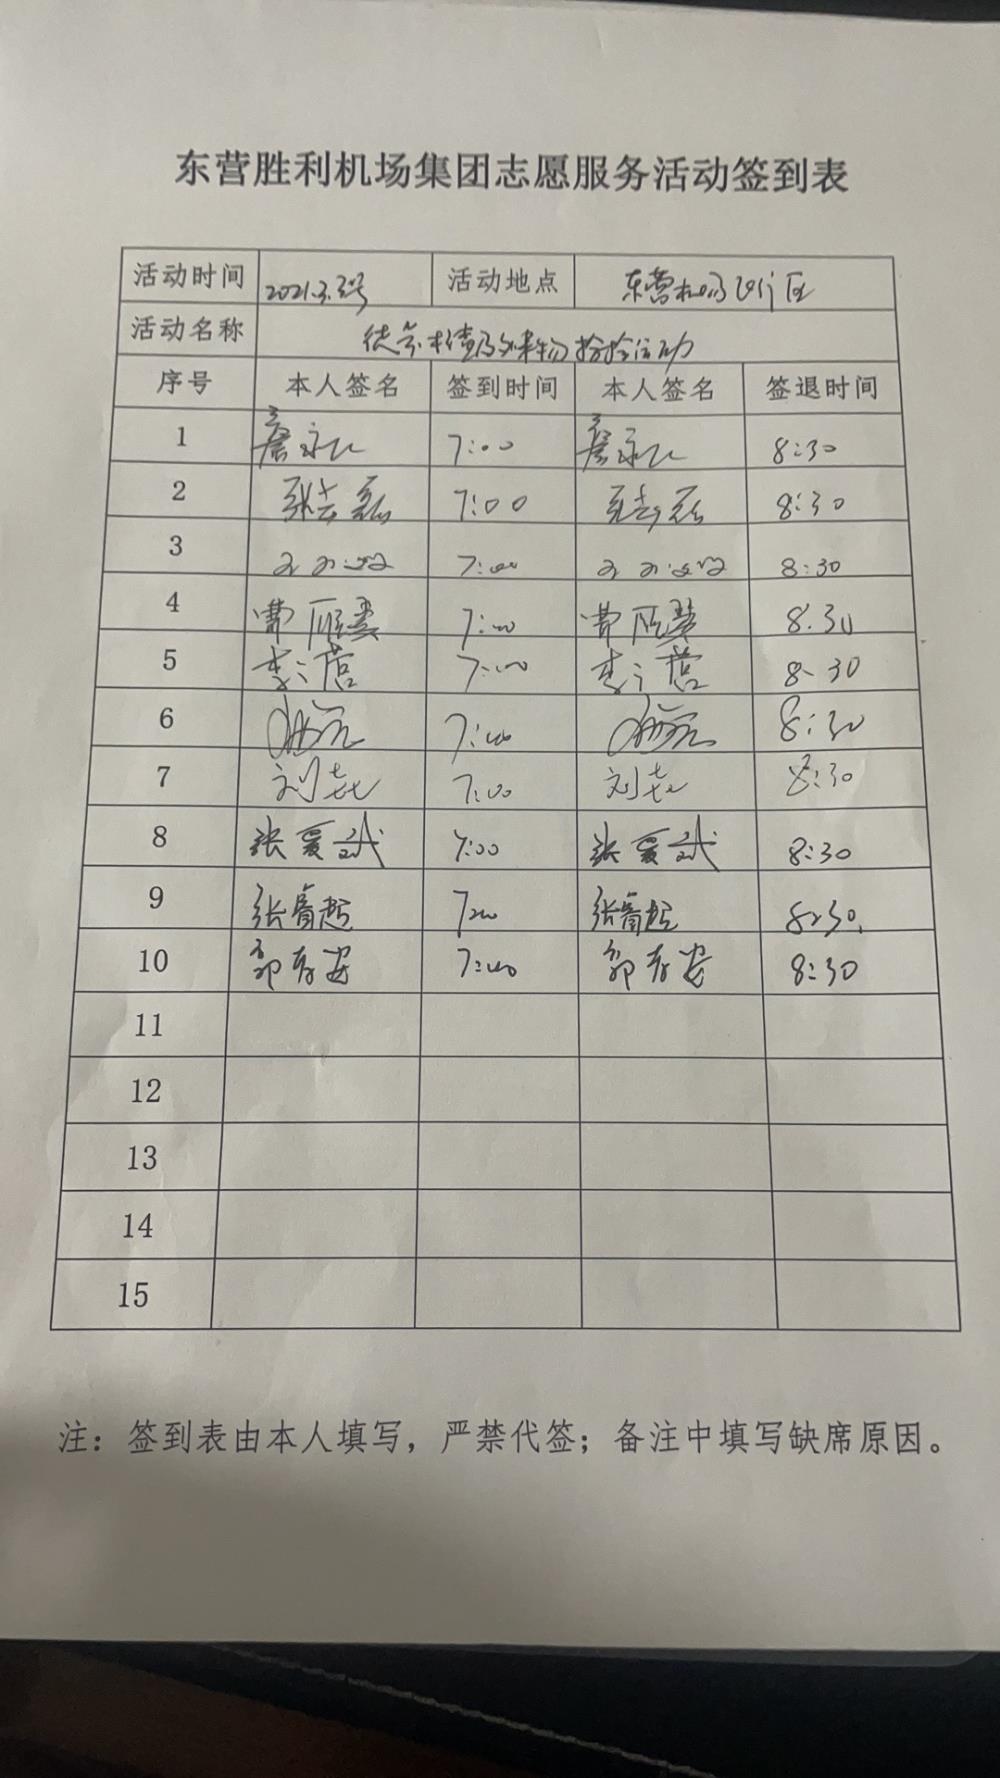 东营胜利机场集团志愿服务活动签到表
活动时间 2021.3.3号 活动地点 东营机场飞行区
活动名称 外来物捡拾活动
序号 本人签名 签到时间 本人签名 签退时间
1 7:00 8:30
2 7:00 8:30
3 7:00 8:30
4 曹 7:00 曹 8:30
5 李 7:00 李 8:30
6 7:00 8:30
7 刘 7:00 刘 8:30
8 张爱武 7:00 张爱武 8:30
9 张 7:00 张 8:30
10 郭存安 7:00 郭存安 8:30
11
12
13
14
15
注：签到表由本人填写，严禁代签；备注中填写缺席原因。